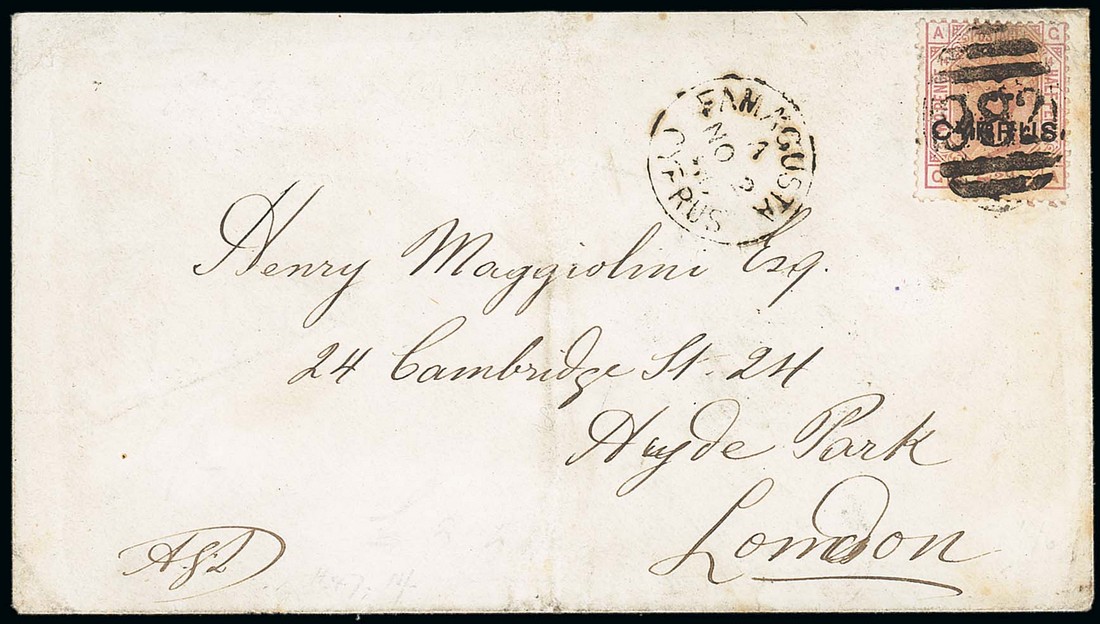 A G
CYPRUS
982
FAMAGUSTA
A
NO 2
CYPRUS
Henry Maggiolini Esq.
24 Cambridge St. 24
Hyde Park
London